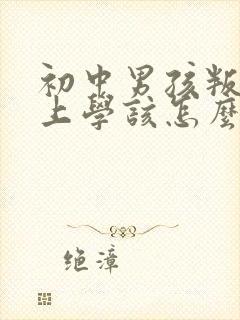 初中男孩叛
上學該怎麼
绝漳